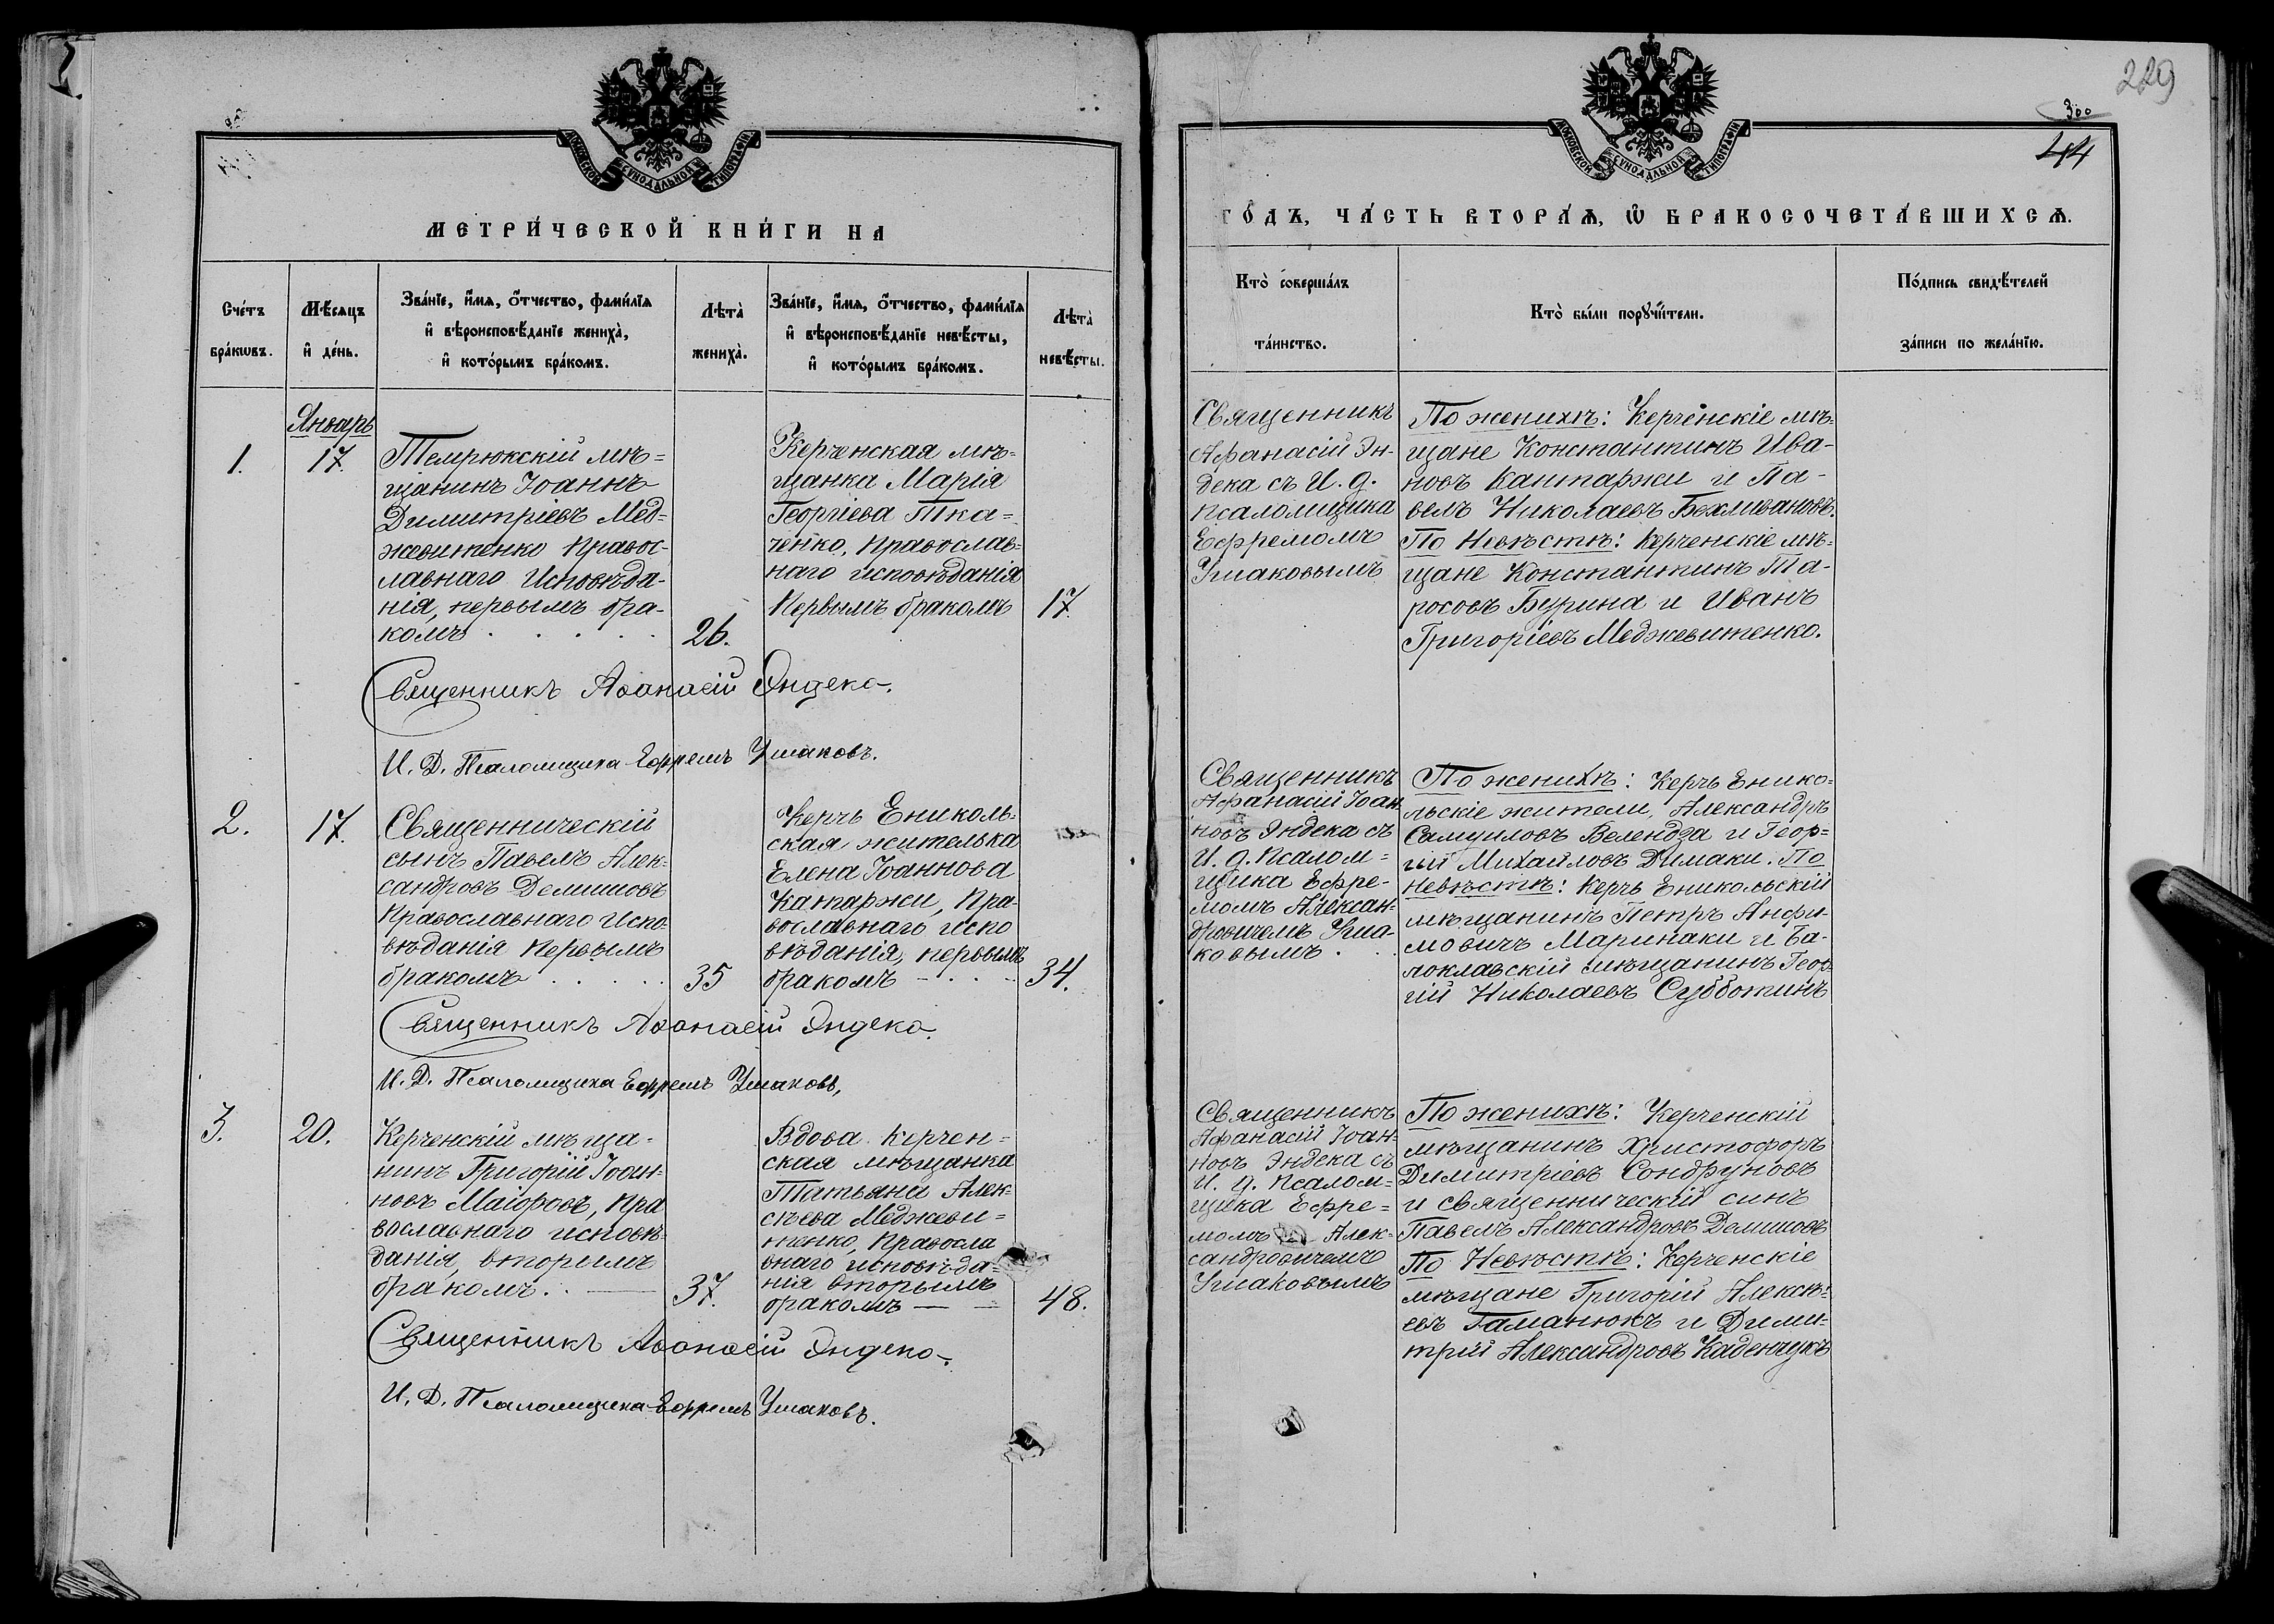 МОСКОВСКОЙ СѴНОДАЛЬНОЙ ТИПОГРАФІИ
МЕТРИ́ЧЕСКОЙ КНИ́ГИ НА
Сче́тъ бра́кωвъ.
Мѣ́сяцъ и҆ де́нь.
Зва́нїе, и҆́мя, ѻ҆́тчество, фами́лїя
и҆ вѣроисповѣ́данїе жениха̀,
и҆ кото́рымъ бра́комъ.
Лѣта̀ жениха̀.
Зва́нїе, и҆́мя, ѻ҆́тчество, фами́лїя
и҆ вѣроисповѣ́данїе невѣ́сты,
и҆ кото́рымъ бра́комъ.
Лѣта̀ невѣ́сты.
Январь
1.
17.
Темрюкскій мѣ=
щанинъ Іоаннъ
Димитріевъ Мед=
жевитенко Правос-
лавнаго Исповѣда-
нія, первымъ бра-
комъ . . . . .
26.
Керченская мѣ=
щанка Марія
Георгіева Тка=
ченко, Православ=
наго исповѣданія
Первымъ бракомъ
17.
Священникъ Аѳанасій Эндека.
И. Д. Псаломщика Ефремъ Ушаковъ.
2.
17.
Священническій
сынъ Павелъ Алек=
сандровъ Демишовъ
Православнаго Испо-
вѣданія Первымъ
бракомъ . . . . .
35
Керчь Ениколь=
ская жителька
Елена Іоаннова
Катаржи, Пра-
вославнаго испо
вѣданія, первымъ
бракомъ - . . -
34.
Священникъ Аѳанасій Эндека.
И. Д. Псаломщика Ефремъ Ушаковъ,
3.
20.
Керченскій мѣща-
нинъ Григорій Іоан-
новъ Маіоровъ, Пра
вославнаго исповѣ-
данія, вторымъ
бракомъ. . —
37.
Вдова керчен=
ская мѣщанка
Татьяна Алек=
сѣева Меджеви=
тенко, Правосла
внаго исповѣда=
нія вторымъ
бракомъ — —
48.
Священникъ Аѳанасій Эндека.
И. Д. Псаломщика Ефремъ Ушаковъ.
229
300
44
МОСКОВСКОЙ СѴНОДАЛЬНОЙ ТИПОГРАФІИ
ГО́ДЪ, ЧА́СТЬ ВТОРА́Ѧ, Ѡ҆ БРАКОСОЧЕТА́ВШИХСѦ.
Кто̀ соверша́лъ
та́инство.
Кто̀ бы́ли порꙋчи́тели.
По́дпись свидѣ́телей
за́писи по жела́нїю.
Священникъ
Афанасій Эн-
дека съ И. д.
псаломщика
Ефремомъ
Ушаковымъ
По женихѣ: Керченскіе мѣ=
щане Константинъ Ива-
новъ Каттаржи и Па-
велъ Николаевъ Бехливановъ.
По Невѣстѣ: Керченскіе мѣ=
щане Константинъ Та-
росовъ Бурина и Иванъ
Григоріевъ Меджевитенко.
Священникъ
Афанасій Іоан
новъ Эндека съ
И. д. Псалом=
щика Ефре-
момъ Алексан-
дровичемъ Уша-
ковымъ . .
По женихѣ: Керчь Енико=
льскіе жители, Александръ
Самуиловъ Велендза и Геор=
гій Михайловъ Димаки. По
невѣстѣ: Керчь Еникольскій
мѣщанинъ Петръ Анфи-
мовичъ Маринаки и Ба-
локлавскій мѣщанинъ Геор
гій Николаевъ Субботинъ
Священникъ
Афанасій Іоан=
новъ Эндека съ
И. д. Псалом=
щика Ефре=
момъ Алек-
сандровичемъ
Ушаковымъ
По женихѣ: Керченскій
мѣщанинъ Христофоръ
Димитріевъ Сондруновъ
и священническій синъ
Павелъ Александровъ Демишовъ
По Невѣстѣ: Керченскіе
мѣщане Григорій Алексѣ=
евъ Гаманюкъ и Дими=
трій Александровъ Каденчукъ